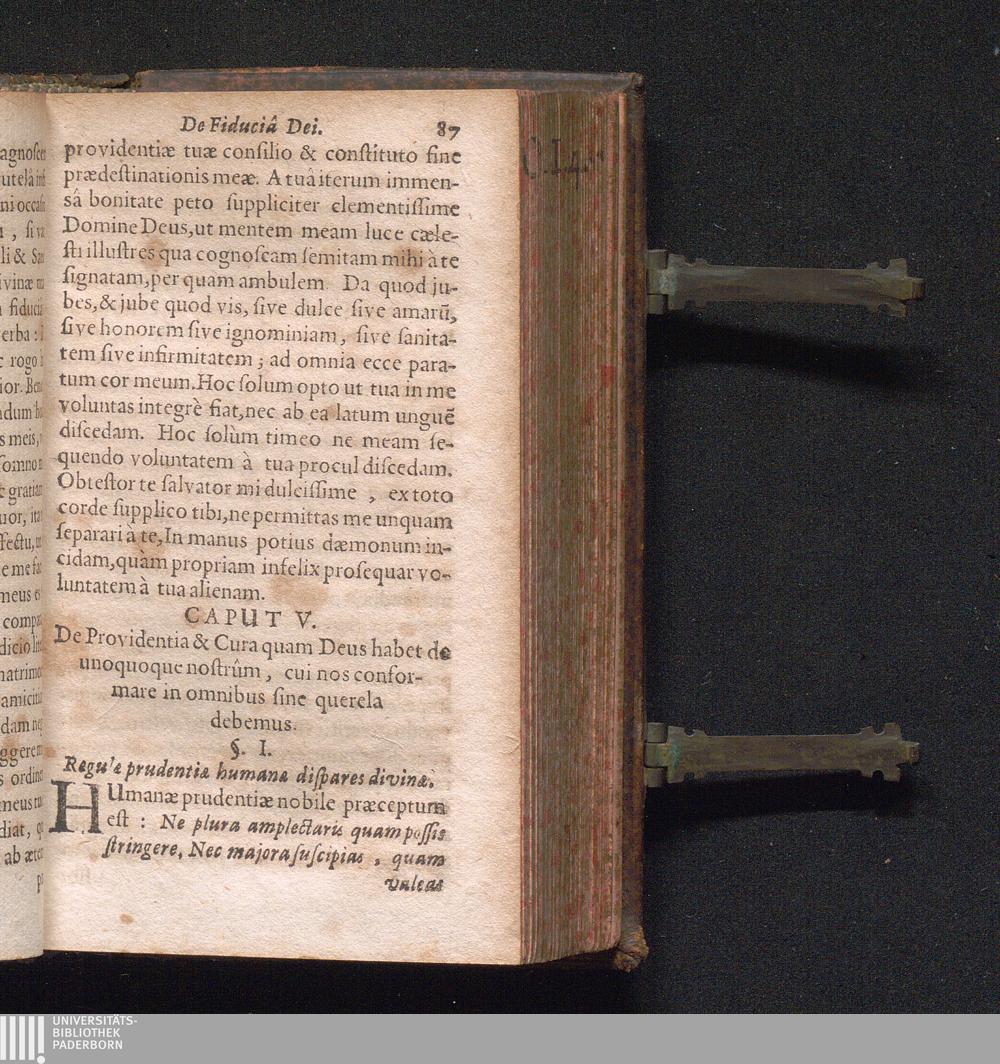 De Fiduciâ Dei. 87
providentiæ tuæ conſilio & conſtituto ſine
prædeſtinationis meæ. A tuâ iterum immen-
sâ bonitate peto ſuppliciter clementiſſime
Domine Deus, ut mentem meam luce cæle-
ſti illuſtres qua cognoſcam ſemitam mihi à te
ſignatam, per quam ambulem. Da quod ju-
bes, & jube quod vis, ſive dulce ſive amarũ,
ſive honorem ſive ignominiam, ſive ſanita-
tem ſive infirmitatem; ad omnia ecce para-
tum cor meum. Hoc ſolum opto ut tua in me
voluntas integrè fiat, nec ab ea latum unguẽ
diſcedam. Hoc ſolùm timeo ne meam ſe-
quendo voluntatem à tua procul diſcedam.
Obteſtor te ſalvator mi dulciſſime, ex toto
corde ſupplico tibi, ne permittas me unquam
ſeparari à te, In manus potius dæmonum in-
cidam, quàm propriam infelix proſequar vo-
luntatem à tua alienam.
CAPUT V.
De Providentia & Cura quam Deus habet de
unoquoque noſtrûm, cui nos confor-
mare in omnibus ſine querela
debemus.
§. I.
Regulæ prudentiæ humanæ diſpares divinæ.
HUmanæ prudentiæ nobile præceptum
eſt : Ne plura amplectaris quam poſſis
ſtringere, Nec majora ſuſcipias, quam
valeas
UNIVERSITÄTS-
BIBLIOTHEK
PADERBORN